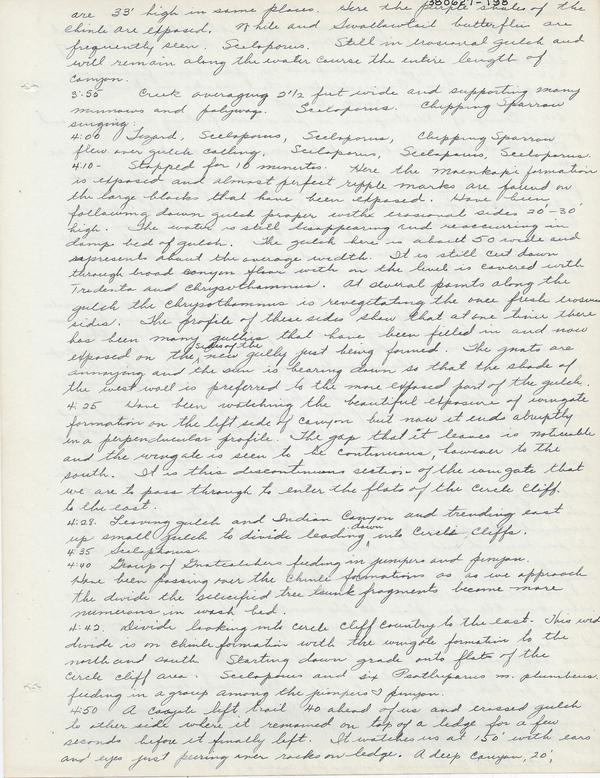 380621-138
are 33' high in some places. Here the purple shales of the
Chinle are exposed. White and Swallowtail butterflies are
frequently seen. Sceloporus. Still in erosional gulch and
will remain along the water course the entire length of
canyon.
3:55 Creek averaging 2½ feet wide and supporting many
minnows and polywogs. Sceloporus. Chipping Sparrow
singing.
4:00 Lizard, Sceloporus, Sceloporus, Chipping Sparrow
flew over gulch calling. Sceloporus, Sceloporus, Sceloporus.
4:10- Stopped for 10 minutes. Here the Moenkopi formation
is exposed and almost perfect ripple marks are found on
the large blocks that have been exposed. Have been
following down gulch proper with erosional sides 20'-30'
high. The water is still disappearing and reoccurring in
damp bed of gulch. The gulch here is about 50 wide and
represents about the average width. It is still cut down
through broad canyon floor with on the level is covered with
Tridenta and Chrysothamnus. At several points along the
gulch the Chrysothamnus is revegitating the once fresh erosive
sides. The profile of these sides show that at one time there
has been many gullies that have been filled in and now
exposed on the sides of the new gully just being formed. The gnats are
annoying and the sun is bearing down so that the shade of
the west wall is preferred to the more exposed part of the gulch.
4:25 Have been watching the beautiful exposure of wingate
formation on the left side of canyon but now it ends abruptly
in a perpendicular profile. The gap that it leaves is noticeable
and the wingate is seen to be continuous, however to the
south. It is this discontinuous section of the wingate that
we are to pass through to enter the flats of the Circle Cliff.
to the east.
4:28. Leaving gulch and Indian Canyon and trending east
up small gulch to divide leading down into Circle Cliffs.
4:35 Sceloporus.
4:40 Group of Gnatcatchers feeding in junipers and pinyon.
Have been passing over the Chinle formations as as we approach
the divide the silicified tree trunk fragments become more
numerous in wash bed.
4:42. Divide looking into circle cliff country to the east. This wide
divide is on Chinle formation with the wingate formation to the
north and south. Starting down grade onto flats of the
Circle cliff area. Sceloporus and six Psaltriparus m. plumbeus
feeding in a group among the junipers & pinyon.
4:50 A Coyote left trail 40 ahead of us and crossed gulch
to other side where it remained on top of a ledge for a few
seconds before it finally left. It watches us at 150' with ears
and eyes just peering over rocks on ledge. A deep Canyon, 20',